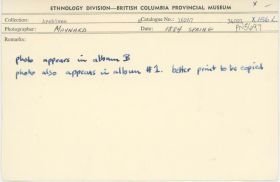 ETHNOLOGY DIVISION—BRITISH COLUMBIA PROVINCIAL MUSEUM
Collection: Catalogue No.: X
Photographer: MAYNARD Date: 1884 SPRING PN5697
Remarks:
photo appears in album B
photo also appears in album #1. better print to be copied